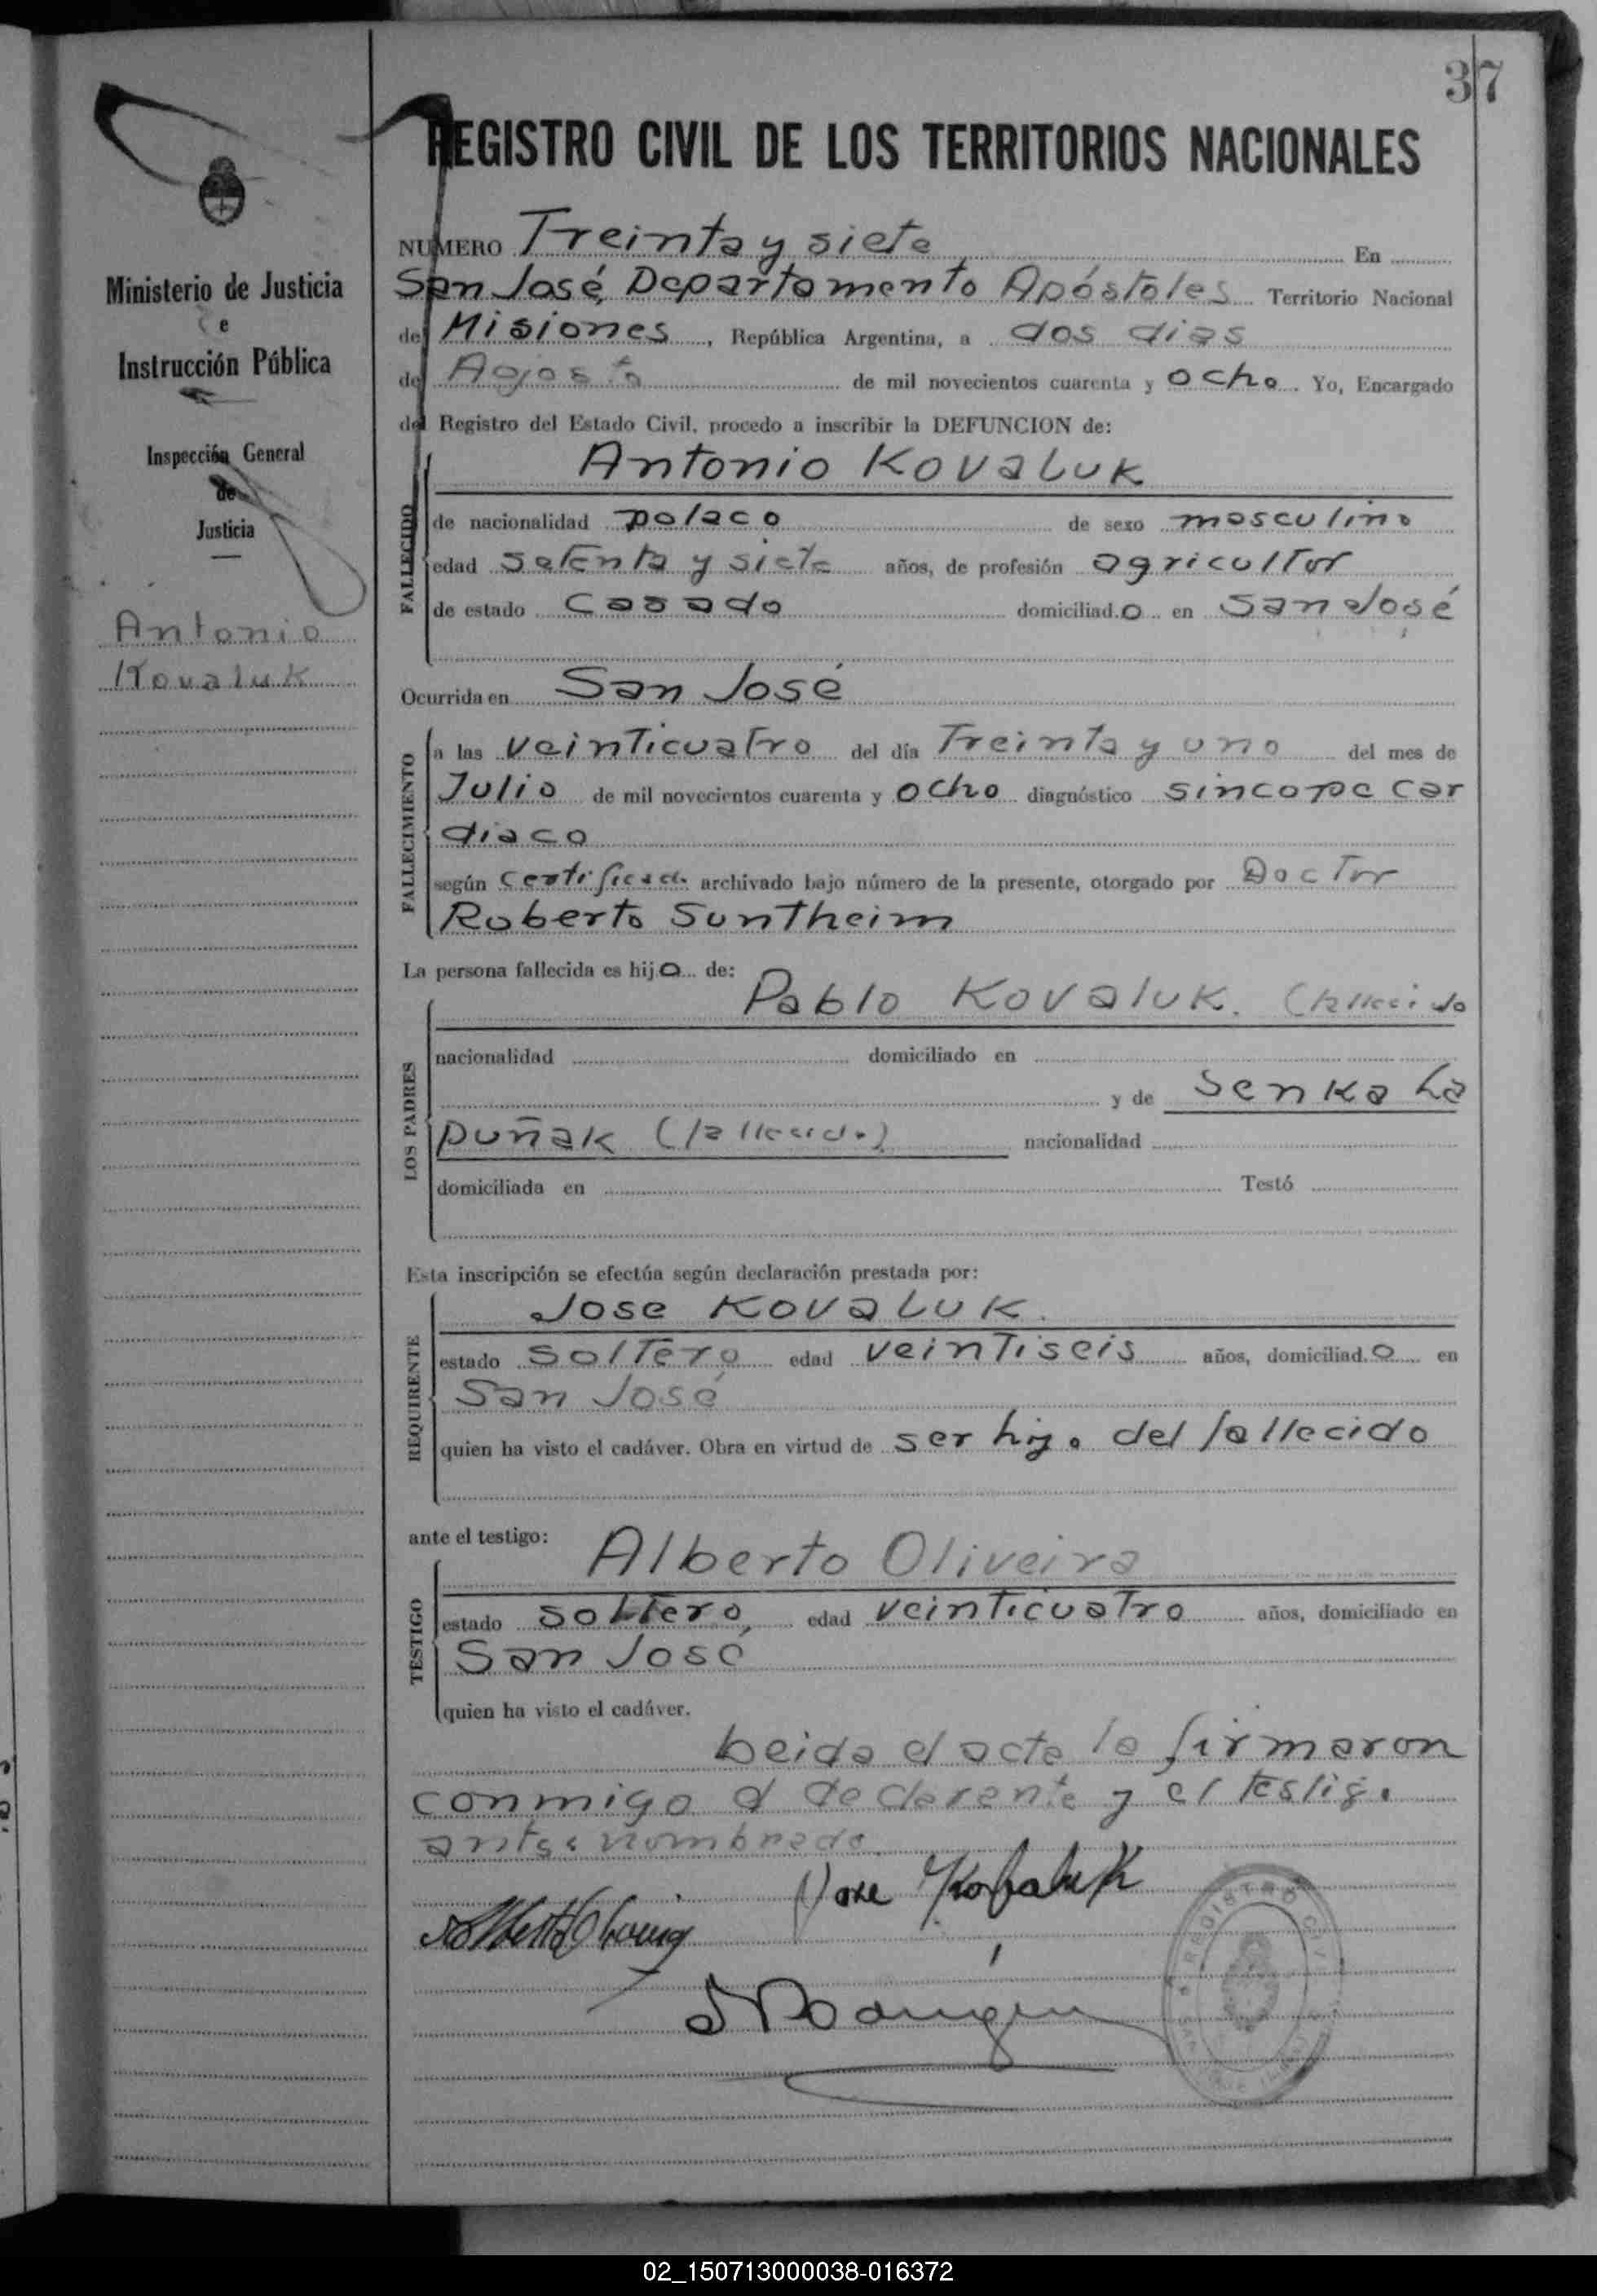 37
REGISTRO CIVIL DE LOS TERRITORIOS NACIONALES
Ministerio de Justicia
e
Instrucción Pública
Inspección General
de
Justicia
Antonio
Kovaluk
NUMERO Treinta y siete En
San José, Departamento Apóstoles Territorio Nacional
de Misiones, República Argentina, a dos dias
de Agosto de mil novecientos cuarenta y ocho. Yo, Encargado
del Registro del Estado Civil, procedo a inscribir la DEFUNCION de:
Antonio Kovaluk
FALLECIDO
de nacionalidad polaco de sexo masculino
edad setenta y siete años, de profesión agricultor
de estado casado domiciliad.o en San José
Ocurrida en San José
FALLECIMIENTO
a las veinticuatro del día Treinta y uno del mes de
Julio de mil novecientos cuarenta y ocho diagnóstico sincope car
diaco
según certificado archivado bajo número de la presente, otorgado por Doctor
Roberto Suntheim
La persona fallecida es hijo de:
Pablo Kovaluk. (fallecido
LOS PADRES
nacionalidad domiciliado en
y de Senka La
puñak (fallecida) nacionalidad
domiciliada en Testó
Esta inscripción se efectúa según declaración prestada por:
Jose Kovaluk.
REQUIRENTE
estado soltero edad veintiseis años, domiciliad.o en
San José
quien ha visto el cadáver. Obra en virtud de ser hijo del fallecido
ante el testigo:
Alberto Oliveira
TESTIGO
estado soltero, edad veinticuatro años, domiciliado en
San José
quien ha visto el cadáver.
Leida el acta la firmaron
conmigo el declarante y el testigo
antes nombrado.
Jose Kovaluk
REGISTRO CIVIL
02_150713000038-016372